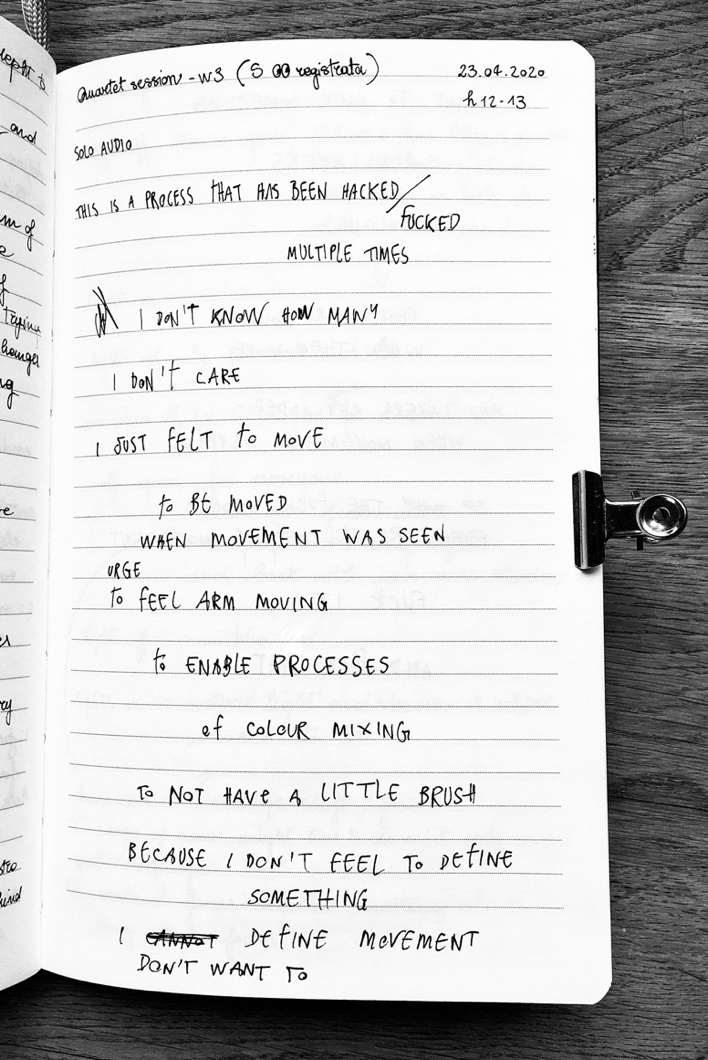 Quartet session - W3 (S registrata)
23.04.2020
h 12-13
SOLO AUDIO
THIS IS A PROCESS THAT HAS BEEN HACKED/
FUCKED
MULTIPLE TIMES
I DON'T KNOW HOW MANY
I DON'T CARE
I JUST FELT to MOVE
to BE MOVED
WHEN MOVEMENT WAS SEEN
URGE
to FEEL ARM MOVING
to ENABLE PROCESSES
of COLOUR MIXING
TO NOT HAVE A LITTLE BRUSH
BECAUSE I DON'T FEEL TO DEFINE
SOMETHING
I CANNOT DEFINE MOVEMENT
DON'T WANT TO